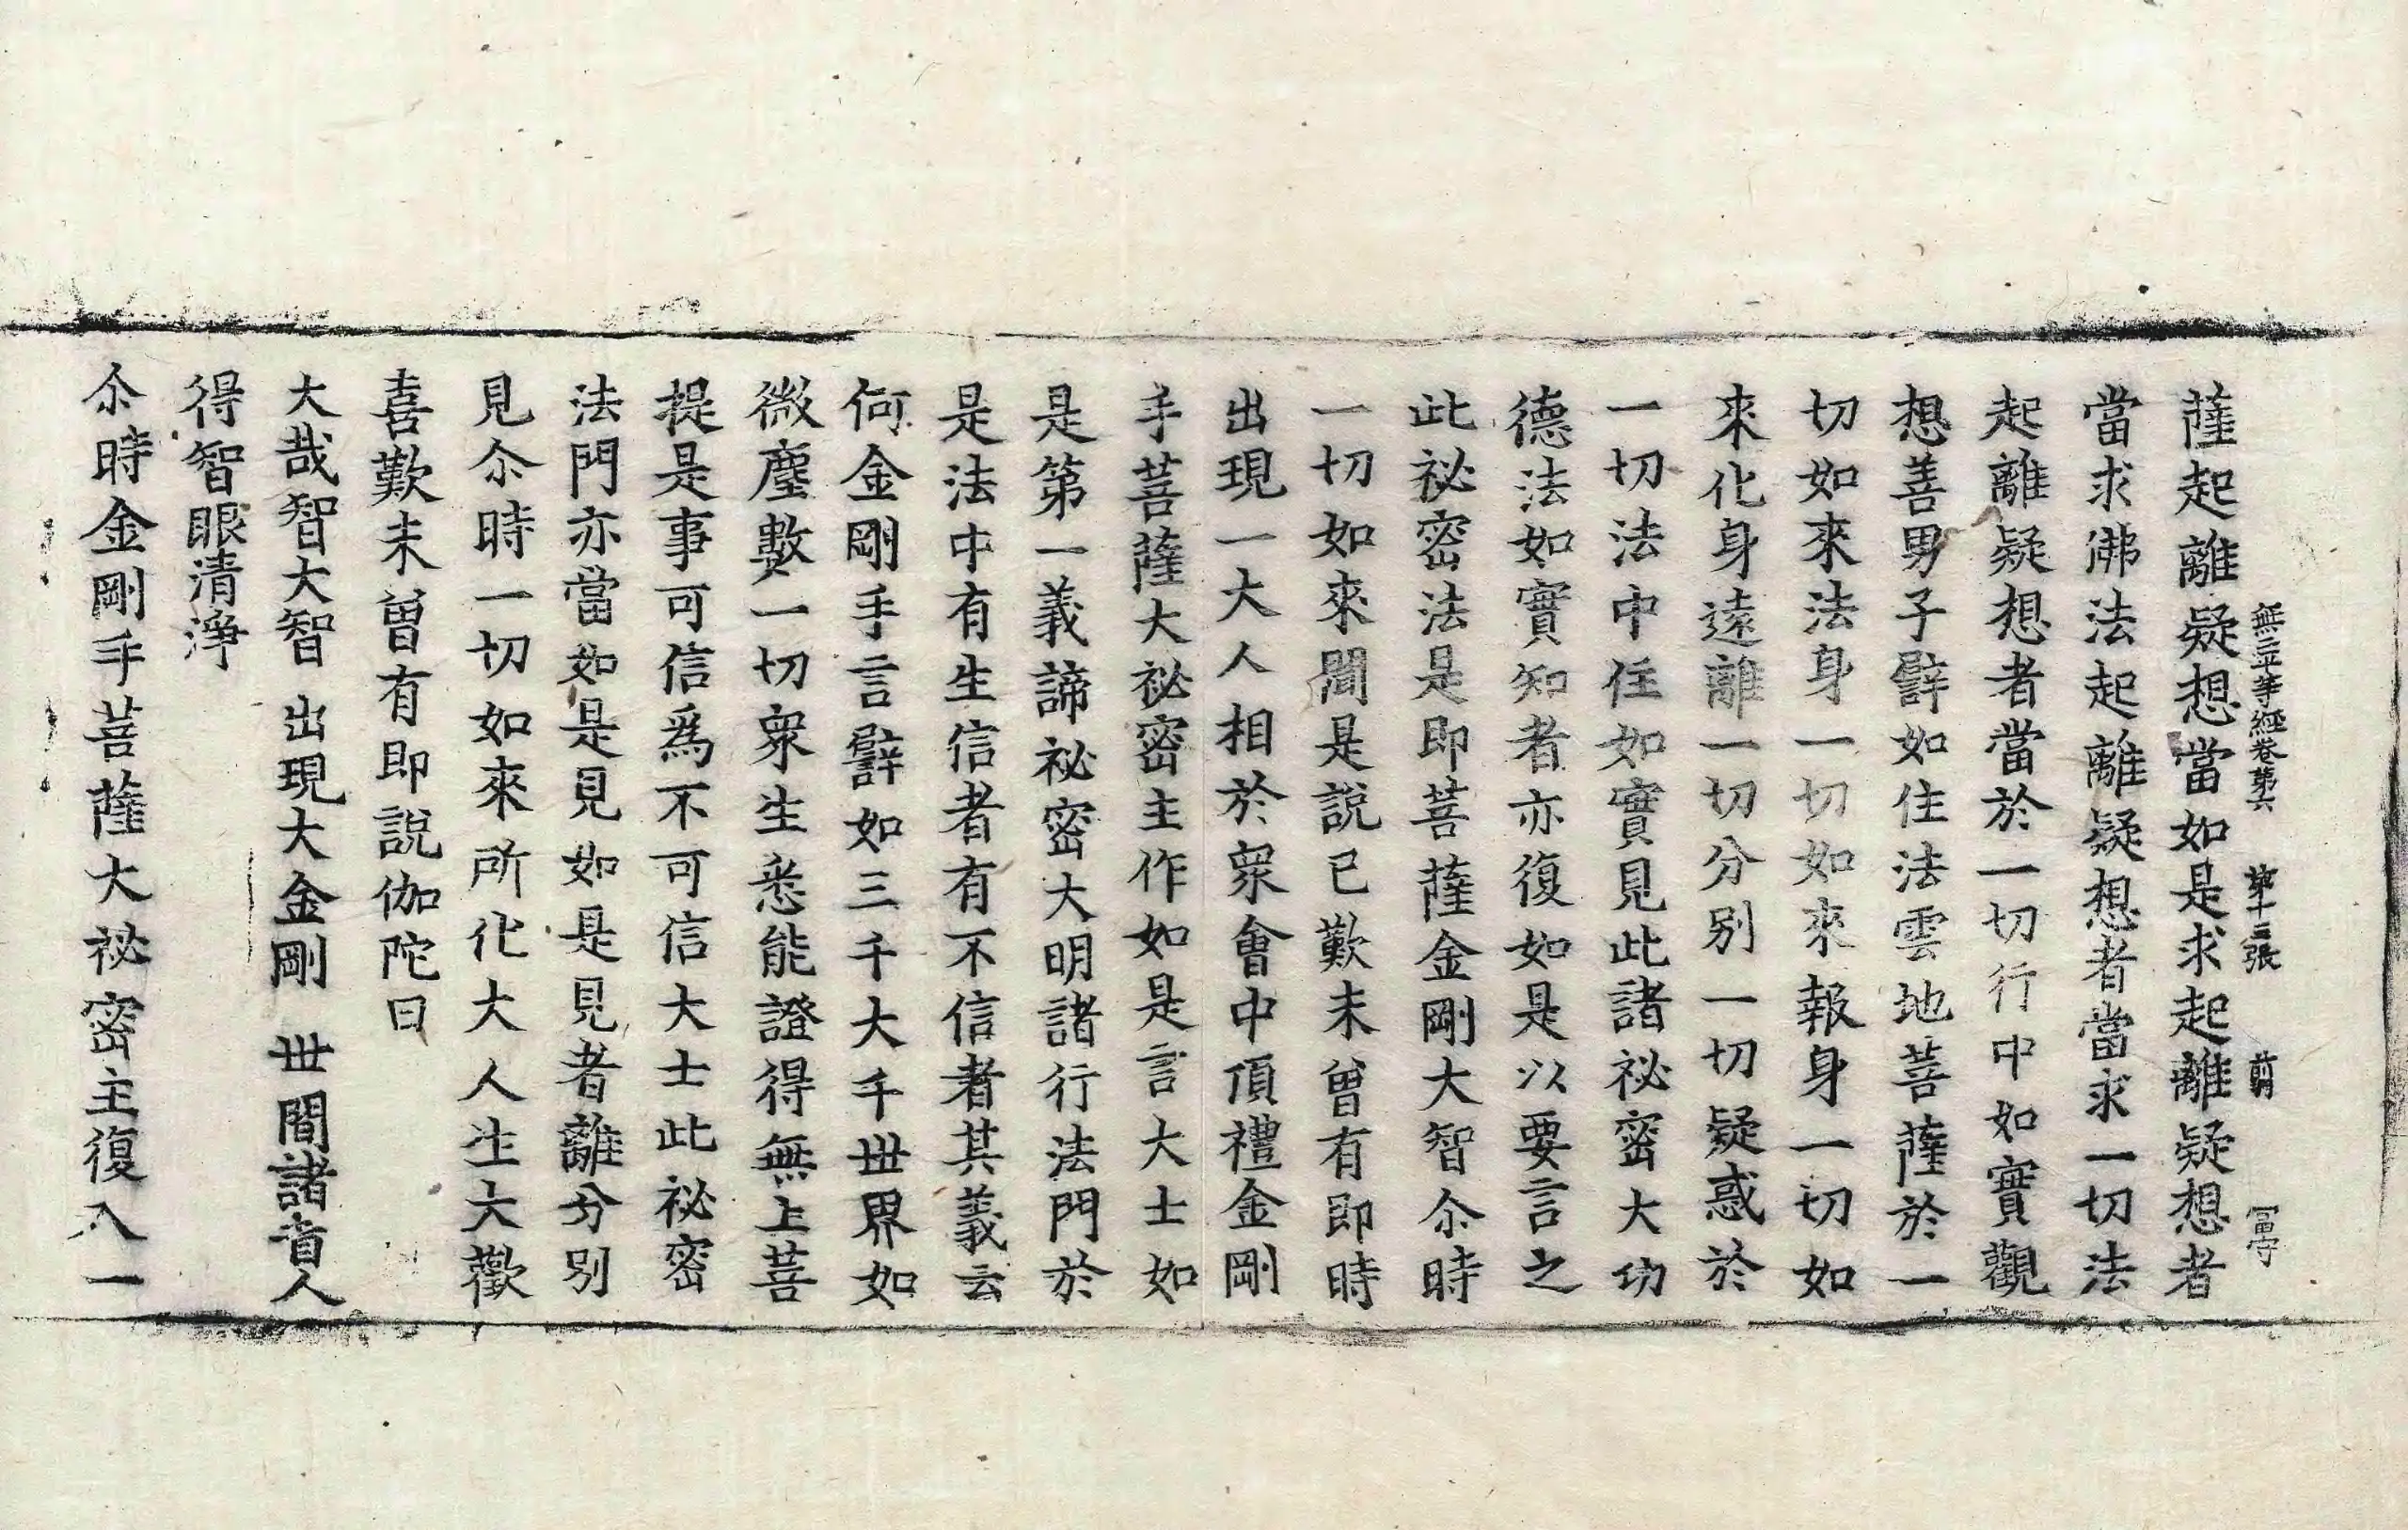 無二平等經卷第六 第十三張 前 冨守
薩起離疑想當如是求起離疑想者
當求佛法起離疑想者當求一切法
起離疑想者當於一切行中如實觀
想善男子譬如住法雲地菩薩於一
切如來法身一切如來報身一切如
來化身遠離一切分别一切疑惑於
一切法中住如實見此諸祕密大功
德法如實知者亦復如是以要言之
此祕密法是即菩薩金剛大智尒時
一切如來聞是說已歎未曾有即時
出現一大人相於衆會中頂禮金剛
手菩薩大祕密主作如是言大士如
是第一義諦祕密大明諸行法門於
是法中有生信者有不信者其義云
何金剛手言譬如三千大千世界如
微塵數一切衆生悉能證得無上菩
提是事可信爲不可信大士此祕密
法門亦當如是見如是見者離分别
見尒時一切如來所化大人生大歡
喜歎未曾有即說伽陀曰
大哉智大智 出現大金剛 世間諸盲人
得智眼清淨
尒時金剛手菩薩大祕密主復入一